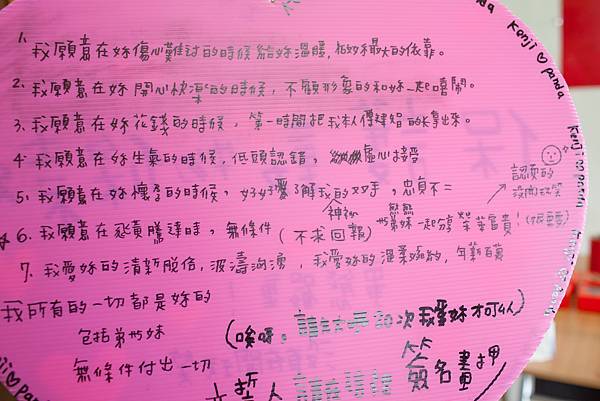 Kenji ♡ panda
1. 我願意在妳傷心難過的時候給妳溫暖,給妳最大的依靠。
2. 我願意在妳開心快樂的時候,不顧形象的和妳一起嘻鬧。
3. 我願意在妳花錢的時候,第一時間把我
4. 我願意在妳生氣的時候,低頭認錯,虛心接受
5. 我願意在妳懷孕的時候,好好愛 了解我的双手,忠貞不二
神祕
認真的
沒開玩笑
6. 我願意在飛黃騰達時,無條件(不求回報)
弟妹一起分享榮華富貴!(很重要)
7. 我愛妳的清新脫俗,波濤洶湧,我愛妳的溫柔婉約,
我所有的一切都是妳的
包括弟弟妹妹
無條件付出一切
(唉呀,請大哭20次我愛妳才可以)
立誓人 請在這裡 簽名畫押
Kenji ♡ panda